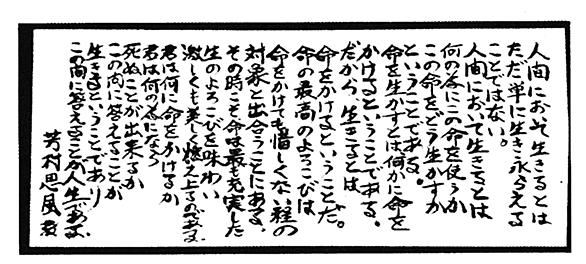 人間において生きるとは
ただ単に生き永らえる
ことではない。
人間において生きるとは
何の為にこの命を使うか
この命をどう生かすか
ということである。
命を生かすとは何かに命を
かけるということである。
だから生きるとは
命をかけるということだ。
命の最高のよろこびは
命をかけても惜しくない程の
対象と出合うことにある。
その時こそ命は最も充実した
生のよろこびを味わい
激しくも美しく燃え上るのである。
君は何に命をかけるか
君は何の為になら
死ぬことが出来るか
この問に答えることが
生きるということであり
この問に答えることが人生である。
芳村思風